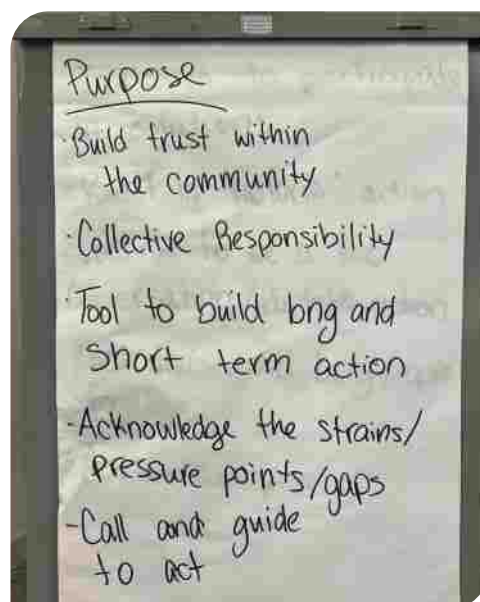 Purpose
·Build trust within
the community
·Collective Responsibility
·Tool to build long and
Short term action
-Acknowledge the strains/
pressure points/gaps
-Call and guide
to act